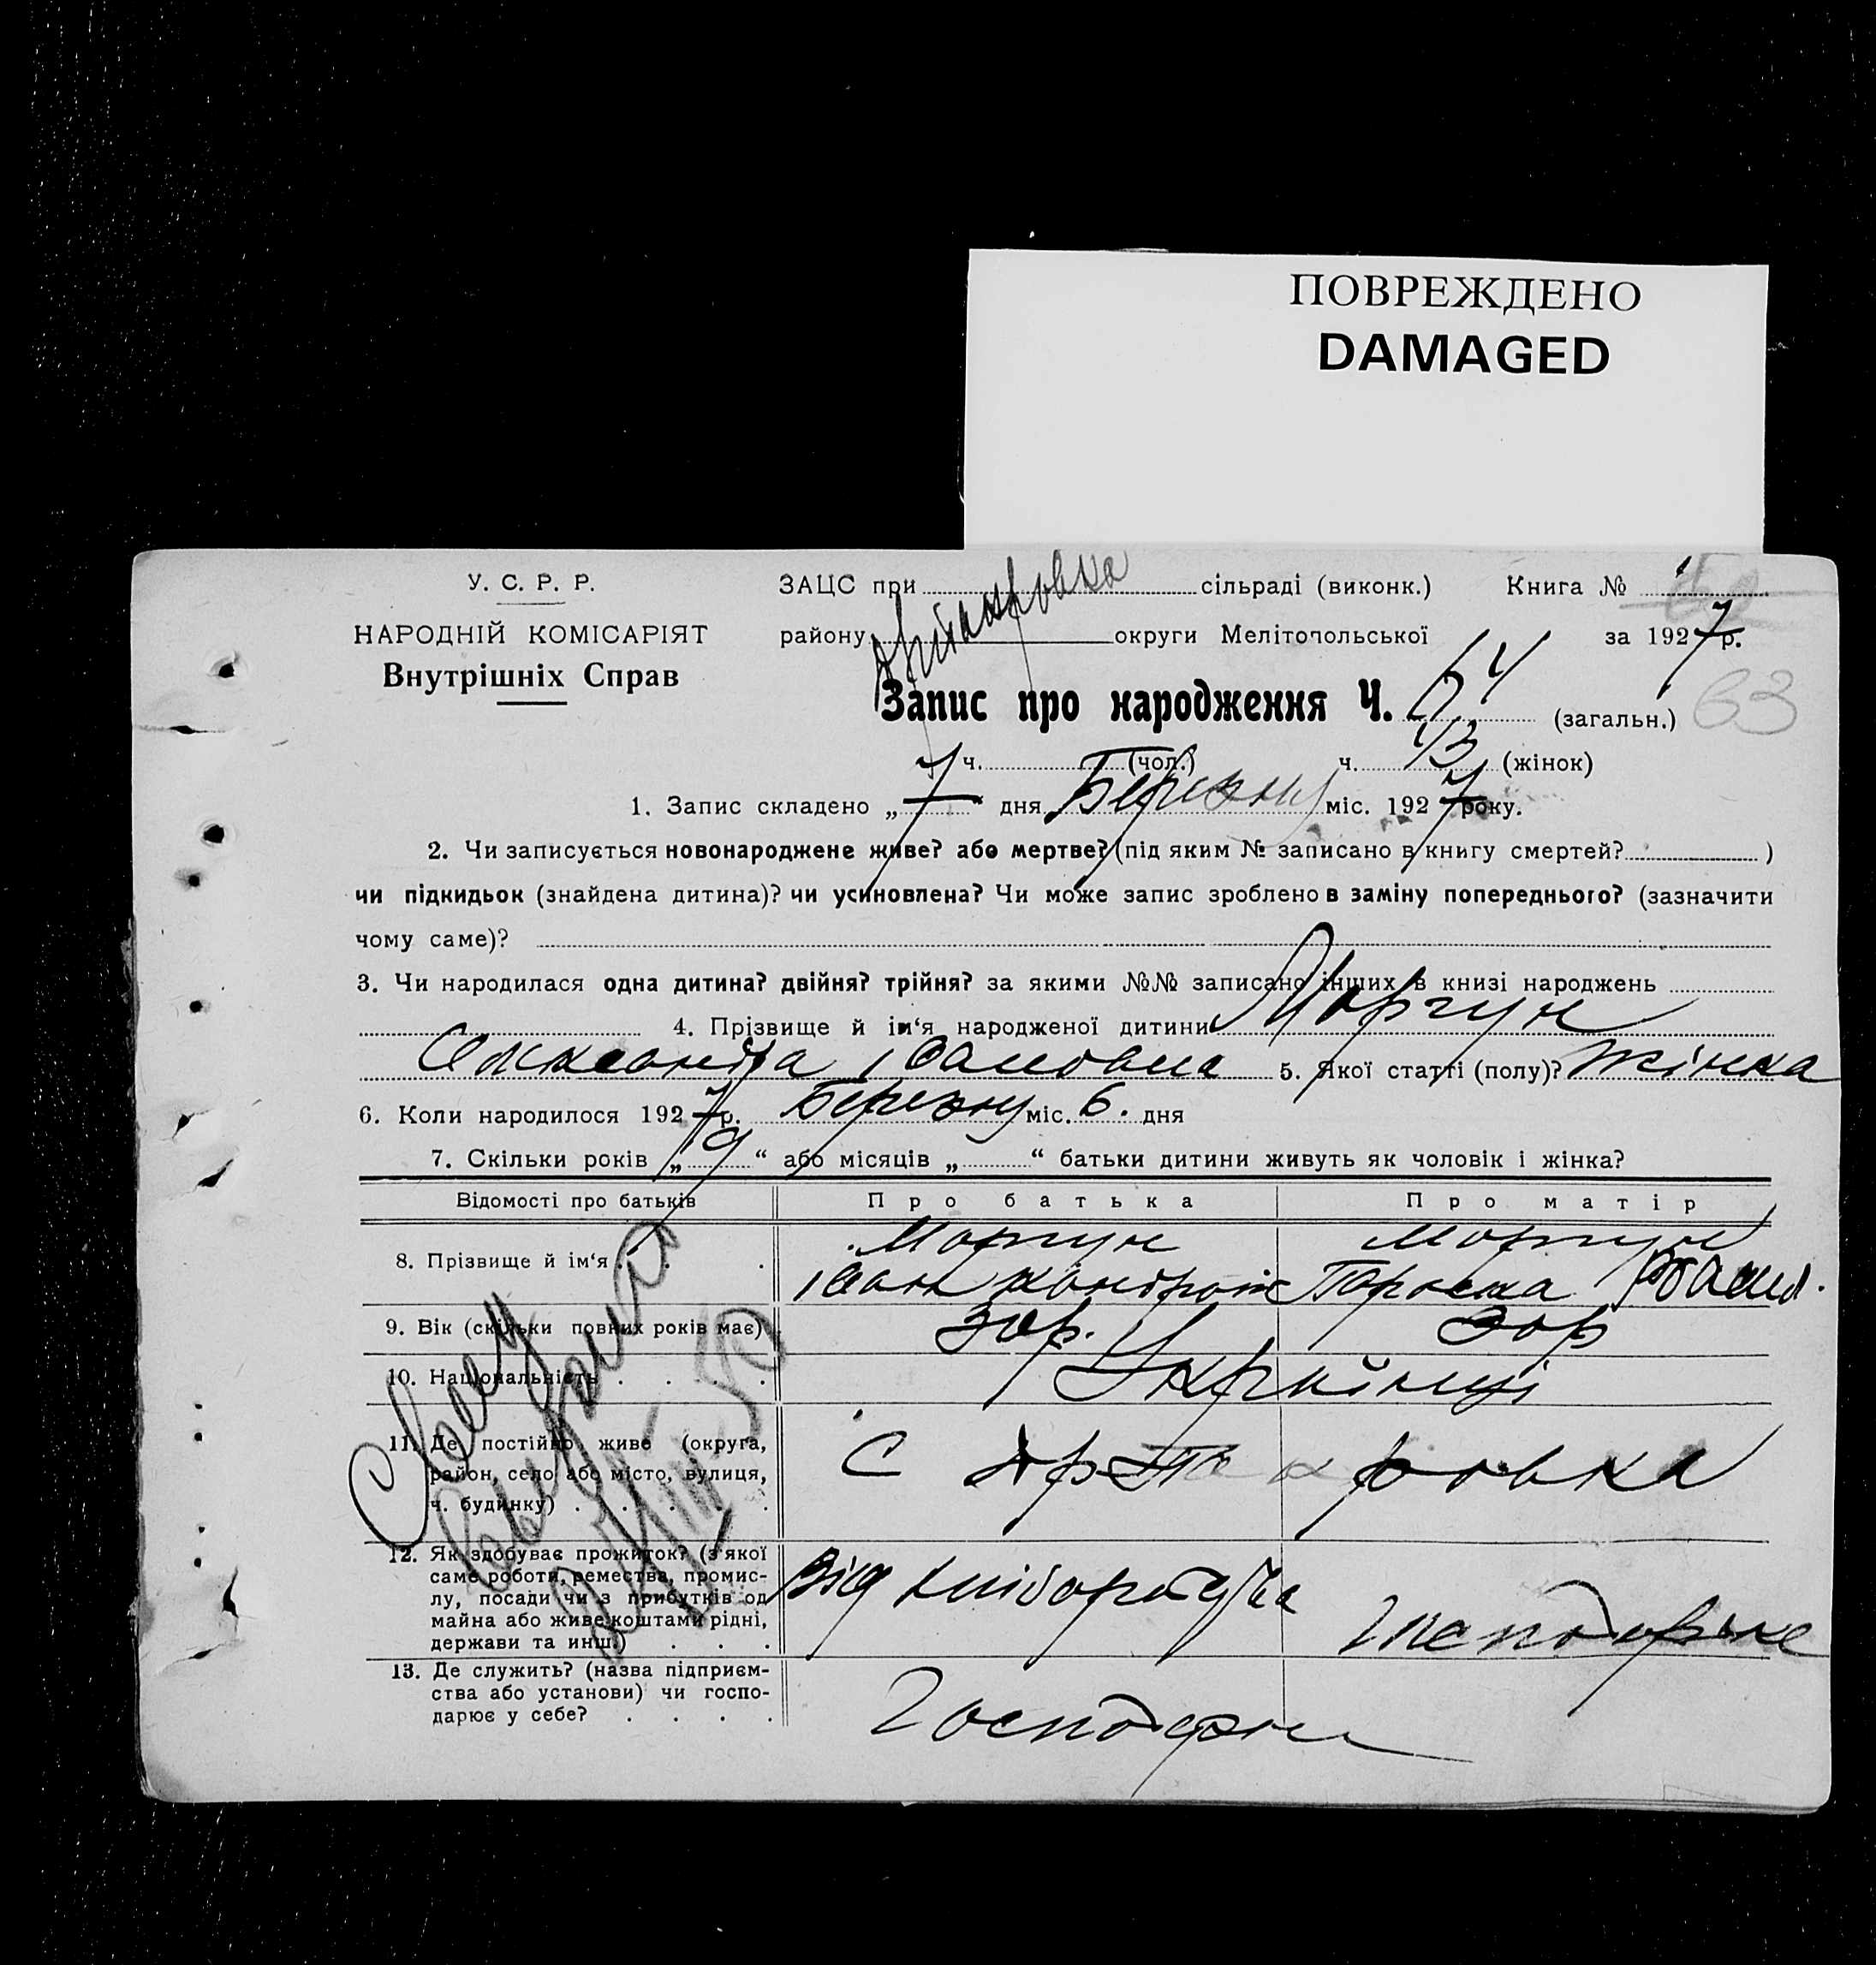 ПОВРЕЖДЕНО
DAMAGED
У. С. Р. Р.
НАРОДНІЙ КОМІСАРІЯТ
Внутрішніх Справ
ЗАЦС при сільраді (виконк.) Книга № 1
району округи Мелітопольської за 1927 р.
Запис про народження Ч. 64 (загальн.) 63
ч. (чол.) ч. 13 (жінок)
1. Запис складено „7“ дня Березню міс. 1927 року.
2. Чи записується новонароджене живе? або мертве? (під яким № записано в книгу смертей? )
чи підкидьок (знайдена дитина)? чи усиновлена? Чи може запис зроблено в заміну попереднього? (зазначити
чому саме)?
3. Чи народилася одна дитина? двійня? трійня? за якими №№ записано інших в книзі народжень
4. Прізвище й ім‘я народженої дитини Моргун
Олександра Івановна 5. Якої статті (полу)? Жінка
6. Коли народилося 1927 р. Березню міс. 6. дня
7. Скільки років „9“ або місяців „ “ батьки дитини живуть як чоловік і жінка?
Відомості про батьків Про батька Про матір
8. Прізвище й ім‘я . . . Моргун Моргун
Іван Кондрат Параска
9. Вік (скільки повних років має) 30р. 30р
10. Національність . . . . Українці
11. Де постійно живе (округа,
район, село або місто, вулиця,
ч. будинку) . . . . С
12. Як здобуває прожиток? (з якої
саме роботи, ремества, промис-
лу, посади чи з прибутків од
майна або живе коштами рідні,
держави та инш.) . . . Від хліборобства
13. Де служить? (назва підприєм-
ства або установи) чи госпо-
дарює у себе? . . . .